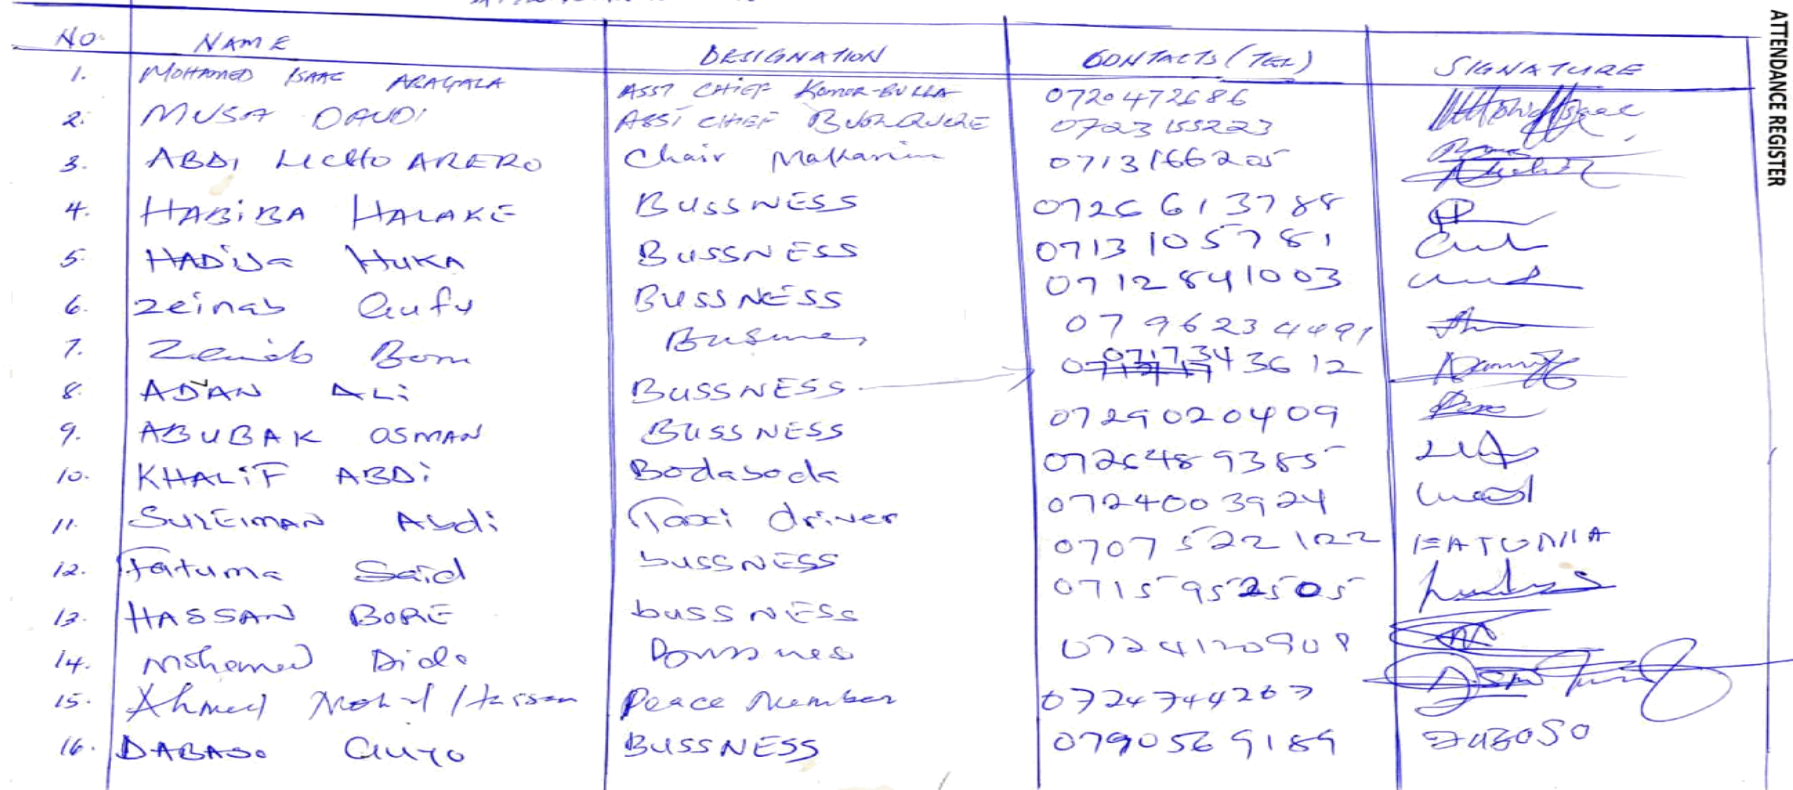 ATTENDANCE REGISTER
NO. NAME DESIGNATION CONTACTS (TEL) SIGNATURE
1. MOHAMED ISAAC ARAGALA ASST CHIEF BULLA 0720472686
2. MUSA DAUDI ASST CHIEF 0723155223
3. ABDI ARERO Chair 0713166205
4. HABIBA HALAKE BUSSNESS 0726613788
5. HADIJA HUKA BUSSNESS 0713105781
6. Zeinab Gufu BUSSNESS 0712841003
7. Business 0796234491
8. ADAN ALi BUSSNESS 0717343612
9. ABUBAK OSMAN BUSSNESS 0729020409
10. KHALiF ABDi 0726489385
11. SULEIMAN Abdi Taxi driver 0724003924
12. Fatuma Said bussNESS 0707522122
13. HASSAN BORE bussNESS 0715952505
14. Mohamed Dido 0724120908
15. Ahmed Hassan Peace Member 0724744267
16. DABASO GUYO BUSSNESS 0790569189